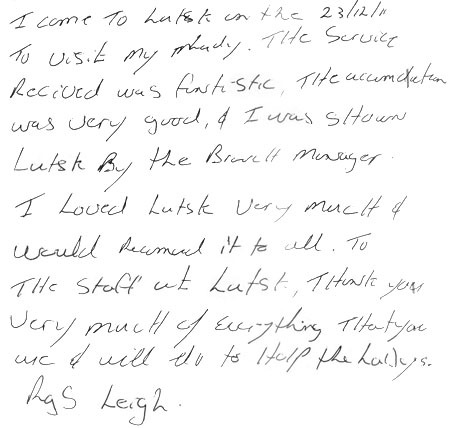 I come To Lutsk on the 23/12/11
To visit my mlady. THe Service
Recived was fantistic, THe accomdation
was very good, & I was SHown
Lutsk By the BrancH Manager.
I Loved Lutsk Very mucH &
would Recomend it to all. To
THe Staff at Lutsk, THank you
Very mucH of Everything THat you
are & will do to Help the Ladys.
Rgs Leigh.